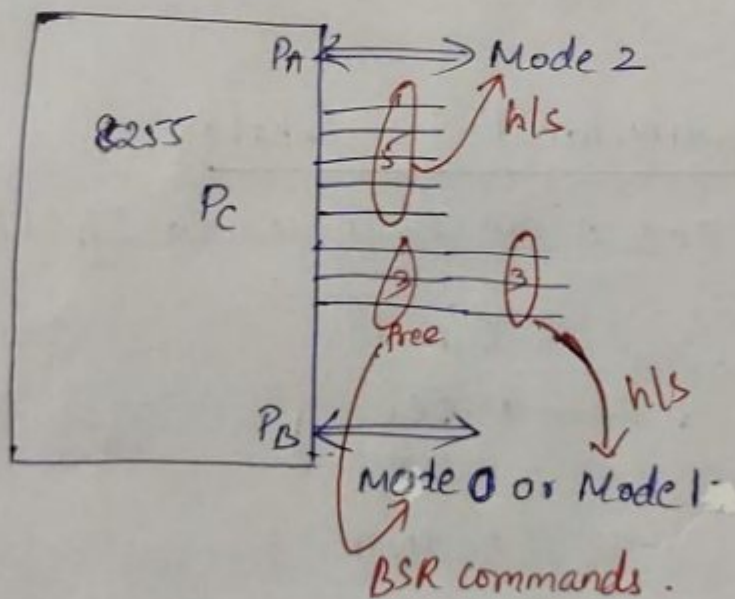 PA Mode 2
8255
h/s
5
PC
3 3
free
h/s
PB
Mode 0 or Mode 1
BSR commands.